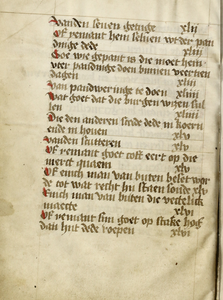 Vanden seuen getuge xlii
Of yemant hem seluen vt der pan
dinge dede xliii
Hoe die gepant is die moet hem
veer pandinge doen binnen veertien
dagen
Van pandweringe te doen xliiii
Wat goet dat die burgen wgen sul
len xliiii
Die den anderen stede dede in koern
ende in houen xlv
Vanden scutteren xlv
Of yemant goet coft eert op die
merct quaem xlv
Of enich man van buten belet wor
de tot wat recht hi staen soude xlv
Of enich man van buten die vechtelick
maecte xlv
Of yemant sijn goet op stake hog
dan hijt dede roepen xlvi